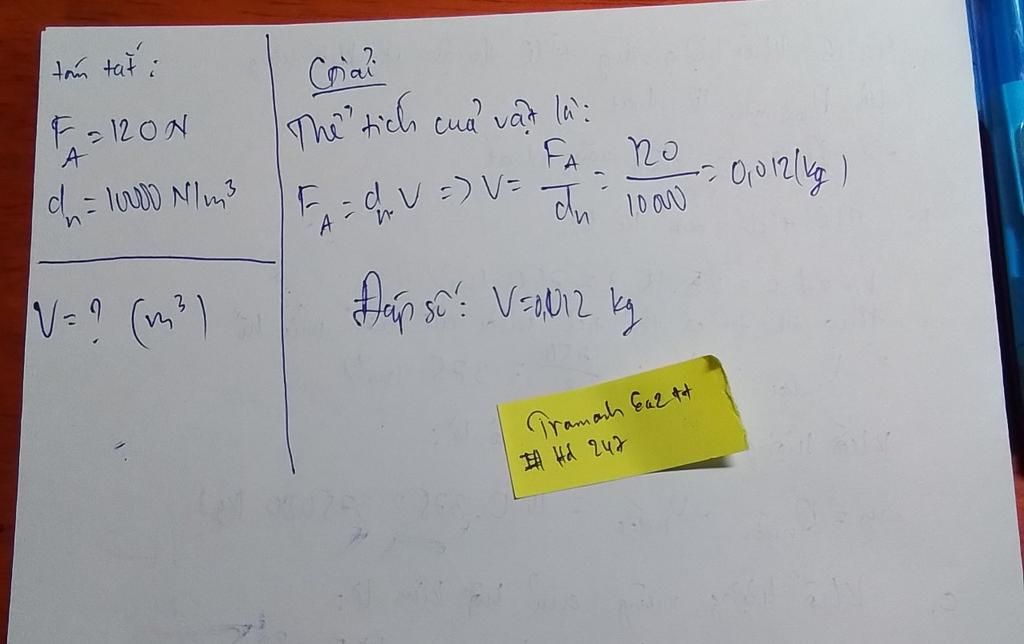 tóm tắt:
F_A = 120 N
d_n = 10000 N/m³
V = ? (m³)
Giải
Thể tích cuả vật là:
F_A = d_n . V => V = F_A / d_n = 120 / 10000 = 0,012 (kg)
Đáp số: V = 0,012 kg
Hd 247